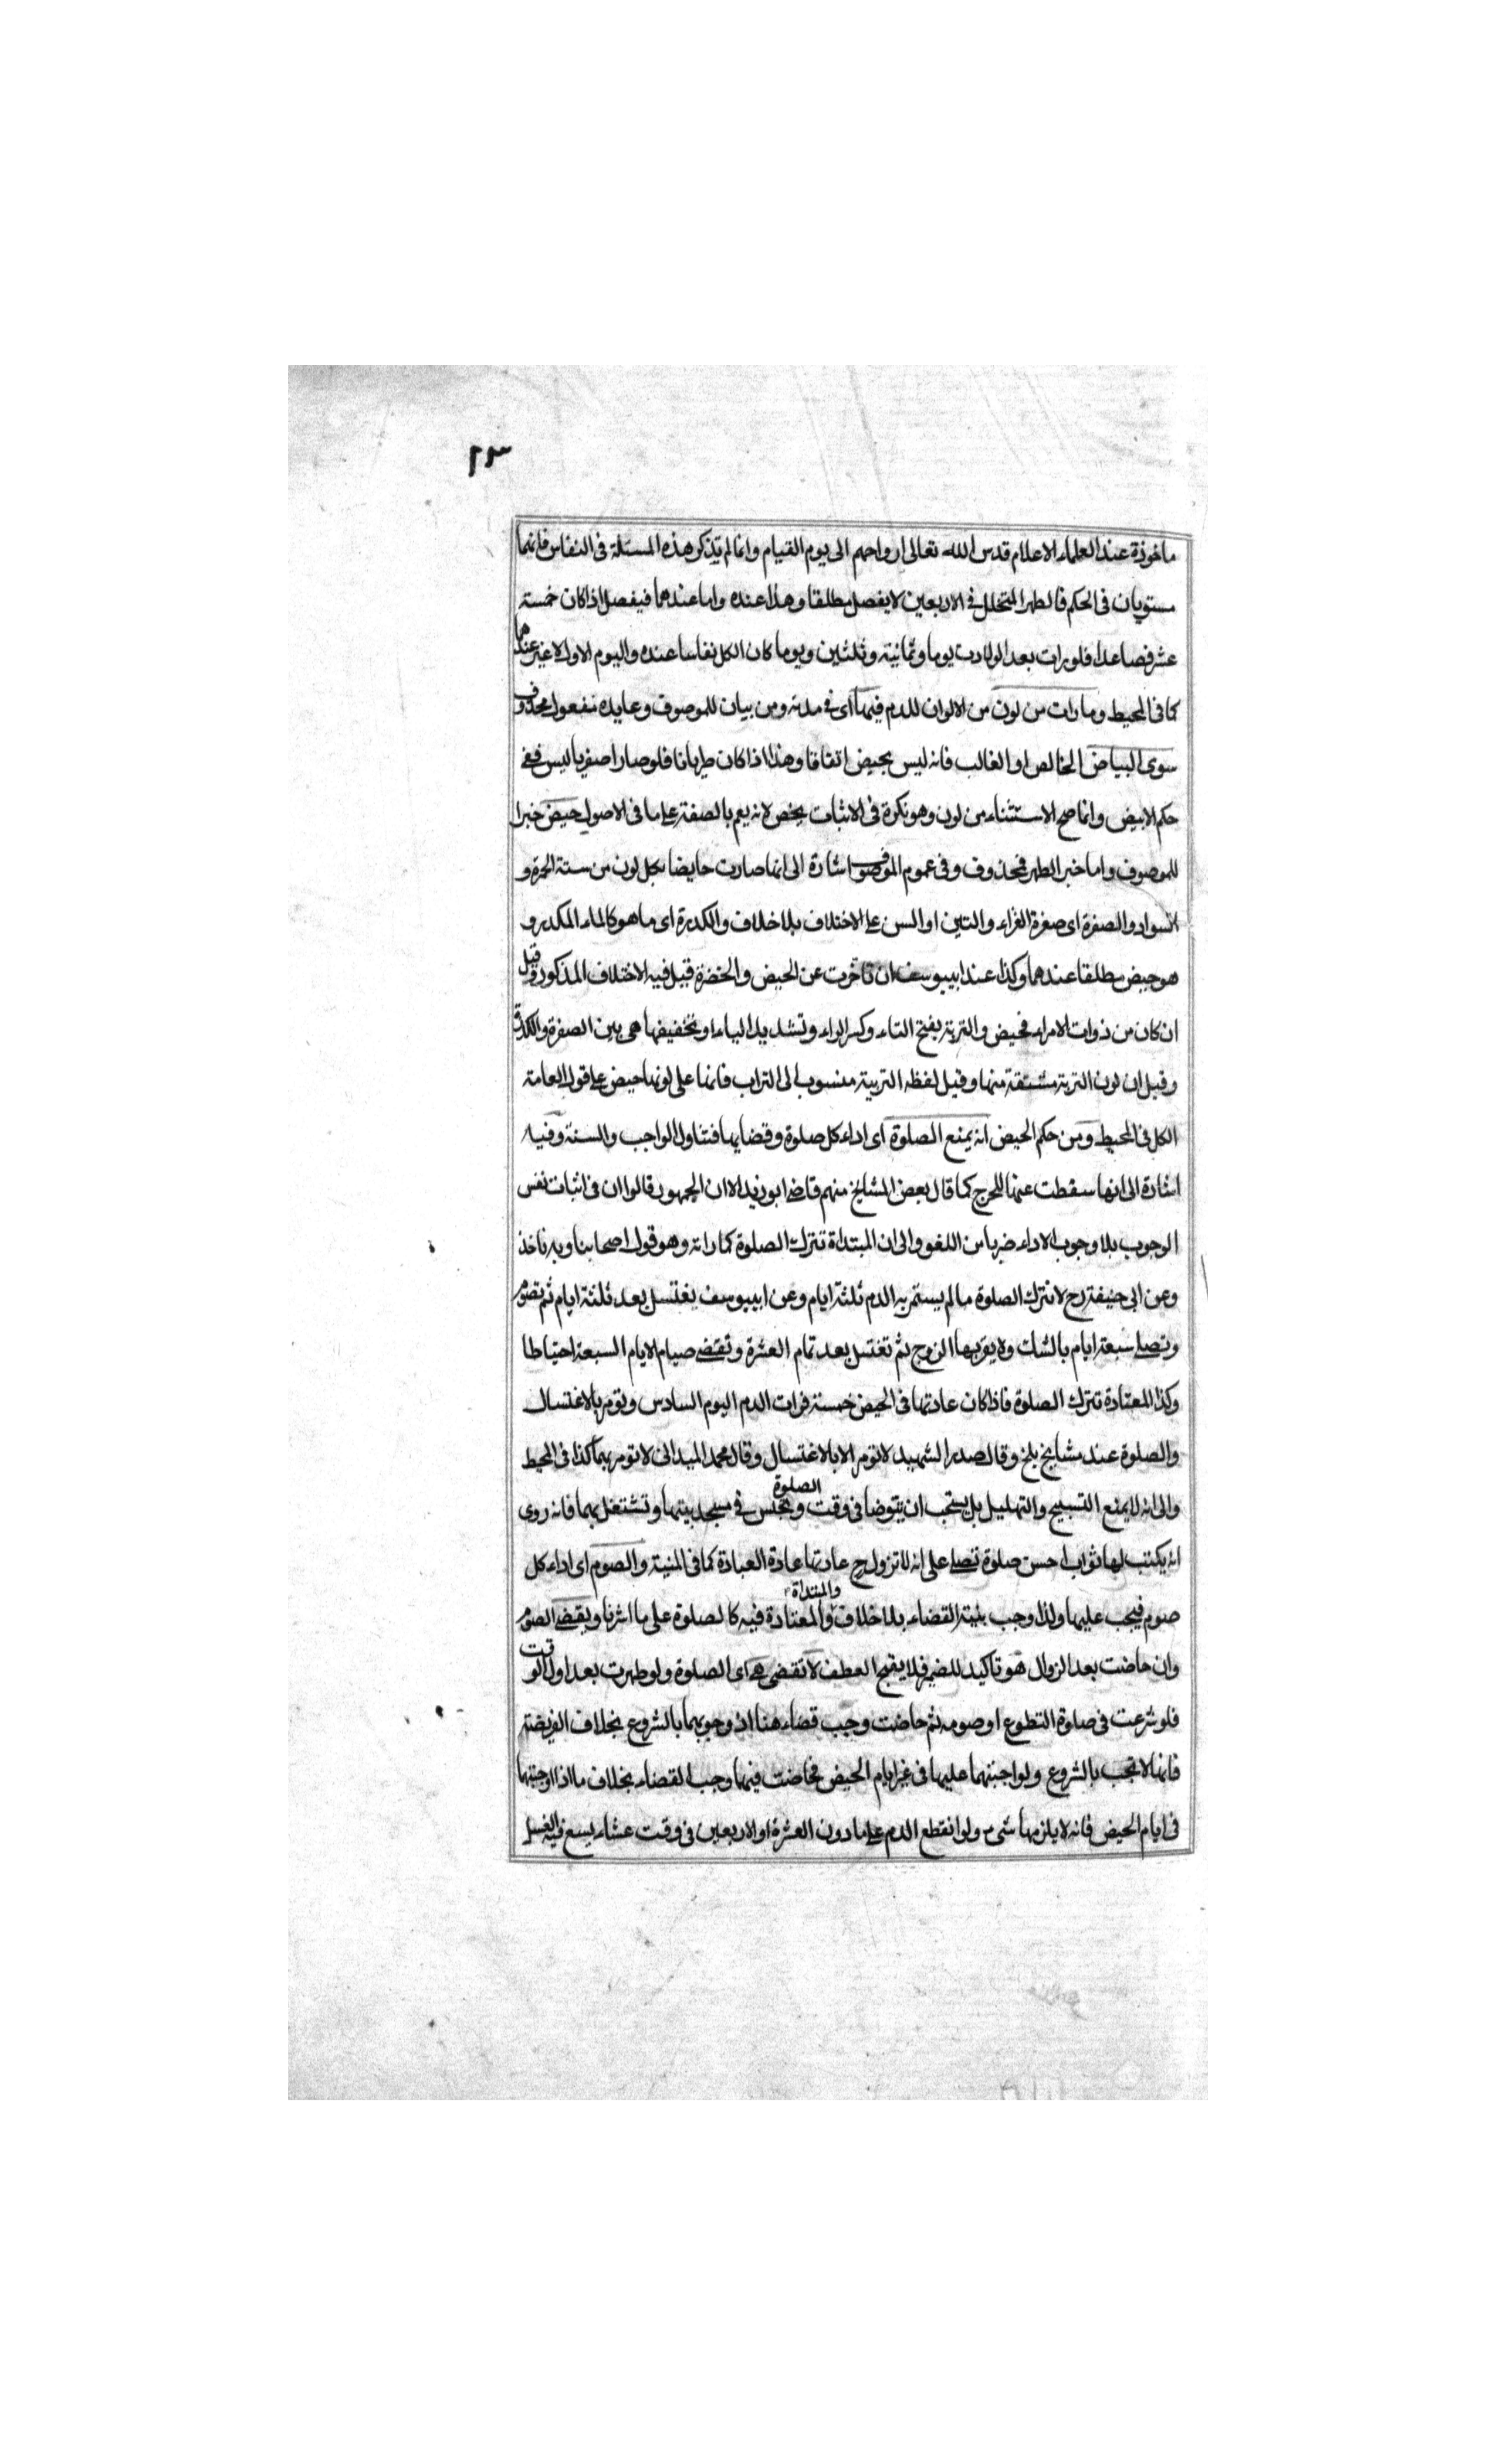 ٢٣
ماخوذة عند العلماء الاعلام قدس الله تعالى ارواحهم الى يوم القيام وانما لم يذكر هذه المسئلة فى النفاس فانهما
مستويان فى الحكم فالطهر المتخلل فى الاربعين لا يفصل مطلقا وهذا عنده واما عندهما فيفصل اذا كان خمسة
عشر فصاعدا فلو رات بعد الولادت يوما وثمانية وثلثين ويوما كان الكل نفاسا عنده واليوم الاول لا غير عندهما
كما فى المحيط وما رات من لون من الالوان للدم فيها اى فى مدته ومن بيان للموصوف وعايده مفعول محذوف
سوى البياض الخالص او الغالب فانه ليس بحيض اتفاقا وهذا اذا كان طريانا فلو صار اصفر باليبس ففى
حكم الابيض وانما صح الاستثناء من لون وهو نكرة فى الاثبات يخص لانه يعم بالصفة على ما فى الاصول حيض خبرا
للموصوف واما خبر الطهر فمحذوف وفى عموم الموصوف اشارة الى انما صارت حايضا بكل لون من ستة الحمرة و
السواد والصفرة اى صفرة الغراء والتبن او السن على الاختلاف بلا خلاف والكدرة اى ما هو كالماء المكدر و
هو حيض مطلقا عندهما وكذا عند ابيبوسف ان تاخرت عن الحيض والخضرة قيل فيه الاختلاف المذكور وقيل
ان كان من ذوات الاقراء فحيض والتربة بفتح التاء وكسر الراء وتشديد الياء او تخفيفها هى بين الصفرة والكدرة
وقيل ان لون التربة مشتقة منها وقيل لفظه التربية منسوب الى التراب فانما على لونها حيض على قول العامة
الكل فى المحيط ومن حكم الحيض انه يمنع الصلوة اى اداء كل صلوة وقضايها فتناول الواجب والسنة وفيه
اشارة الى انها سقطت عنها للحرج كما قال بعض المشايخ منهم قاضى ابو زيد الا ان الجمهور قالوا ان فى اثبات نفس
الوجوب بلا وجوب الاداء ضربا من اللغو والى ان المبتداة تترك الصلوة كما راته وهو قول اصحابنا وبه ناخذ
وعن ابى حنيفة رح لا تترك الصلوة ما لم يستمر به الدم ثلثة ايام وعن ابيبوسف يغتسل بعد ثلثة ايام ثم تصوم
وتصلى سبعة ايام بالشك ولا يقربها الزوج ثم تغتسل بعد تمام العشرة وتقضى صيام الايام السبعة احتياطا
وكذا المعتادة تترك الصلوة فاذا كان عادتها فى الحيض خمسة فرات الدم اليوم السادس وتومر بالاغتسال
والصلوة عند مشايخ بلخ وقال صدر الشهيد لا تومر الا بالاغتسال وقال محمد الميدانى لا تومر بهما كذا فى المحيط
والى انه لا يمنع التسبيح والتهليل بل يستحب ان يتوضا فى وقت الصلوة وتجلس فى مسجد بيتها وتشتغل بهما فانه روى
انه يكتب لها ثواب احسن صلوة تصلى على انه لا تزول ح عادتها عادة العبادة كما فى المنية والصوم اى اداء كل
صوم فيجب عليها ولذا وجب بنية القضاء بلا خلاف والمعتادة والمبتداة فيه كالصلوة على ما اشرنا ويقضى الصوم
وان حاضت بعد الزوال هو تاكيد للضمير فلا يقبح العطف لا تقضى هى اى الصلوة ولو طهرت بعد اول الوقت
فلو شرعت فى صلوة التطوع او صومه ثم حاضت وجب قضاء هنا اذ وجوبهما بالشروع بخلاف الفريضة
فانها لا تجب بالشروع ولو اجبتهما عليها فى غير ايام الحيض فحاضت فيها وجب القضاء بخلاف ما اذا اوجبتهما
فى ايام الحيض فانه لا يلزمها شىء ولو انقطع الدم على ما دون العشرة او الاربعين فى وقت عشاء يسع فيه الغسل